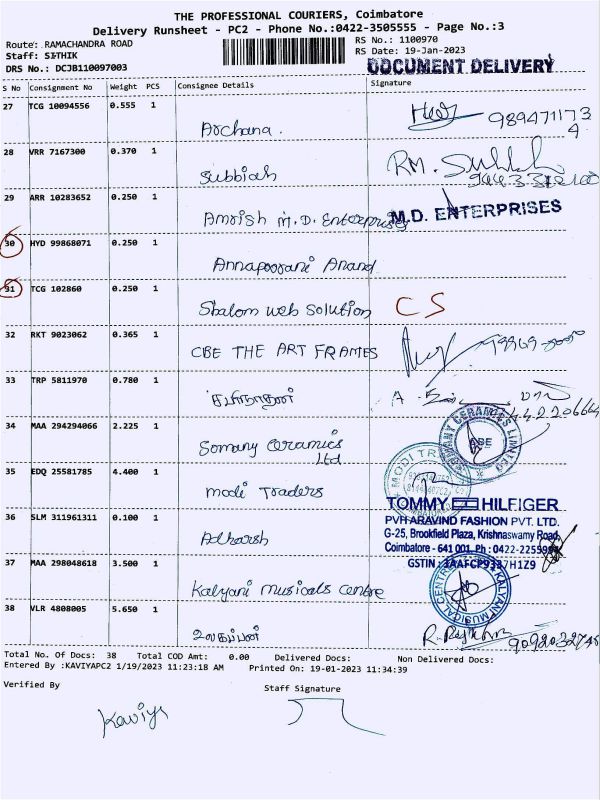 THE PROFESSIONAL COURIERS, Coimbatore
Delivery Runsheet - PC2 - Phone No.:0422-3505555 - Page No.:3
Route: RAMACHANDRA ROAD RS No.: 1100970
Staff: SITHIK RS Date: 19-Jan-2023
DRS No.: DCJB110097003 DOCUMENT DELIVERY
S No Consignment No Weight PCS Consignee Details Signature
27 TCG 10094556 0.555 1
Archana. 989471173
4
28 VRR 7167300 0.370 1
Subbiah RM.
29 ARR 10283652 0.250 1
Amrish M.D. Enterprises M.D. ENTERPRISES
30 HYD 99868071 0.250 1
Annapoorani Anand
31 TCG 102860 0.250 1
Shalom web solution CS
32 RKT 9023062 0.365 1
CBE THE ART FRAMES
33 TRP 5811970 0.780 1
A.
34 MAA 294294066 2.225 1
Somany Ceramics
Ltd
CERAMICS LIMITED
CBE
35 EDQ 25581785 4.400 1
Modi Traders
MODI
TOMMY HILFIGER
36 SLM 311961311 0.100 1
PVH ARAVIND FASHION PVT. LTD.
G-25, Brookfield Plaza, Krishnaswamy Road,
Adharsh
Coimbatore - 641 001. Ph : 0422-2255
37 MAA 298048618 3.500 1
GSTIN :
Kalyani Musicals Centre
KALYANI MUSICAL CENTRE
38 VLR 4808005 5.650 1
உலகப்பன் R.
Total No. Of Docs: 38 Total COD Amt: 0.00 Delivered Docs: Non Delivered Docs:
Entered By :KAVIYAPC2 1/19/2023 11:23:18 AM Printed On: 19-01-2023 11:34:39
Verified By Staff Signature
Kaviya